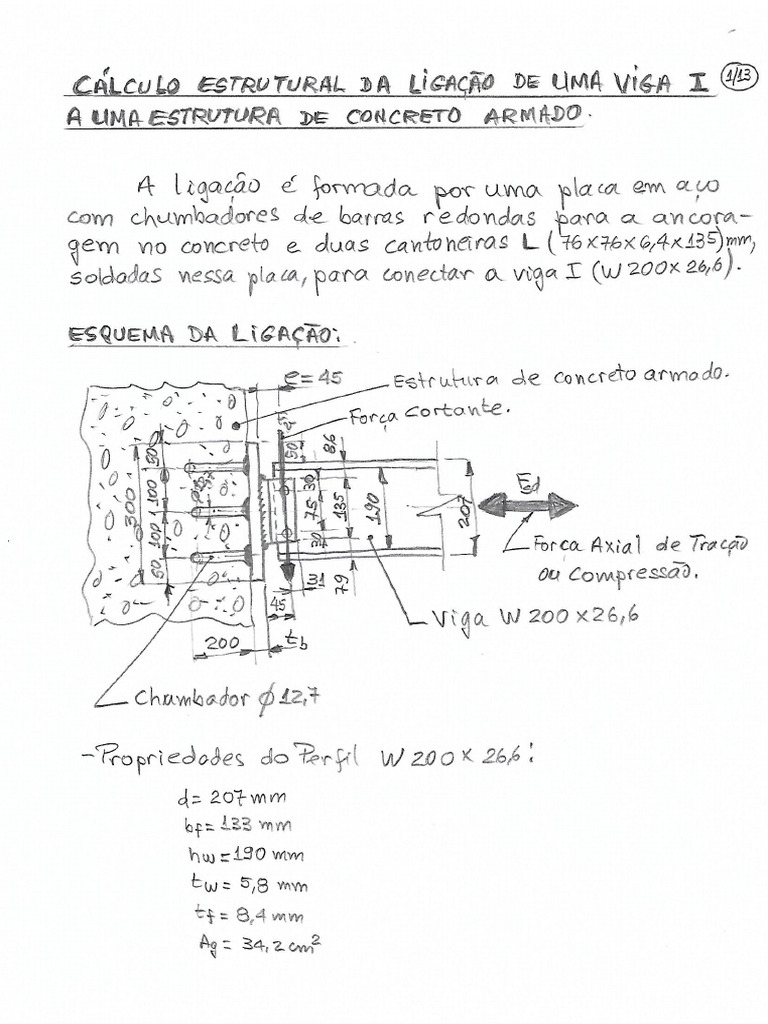 CÁLCULO ESTRUTURAL DA LIGAÇÃO DE UMA VIGA I
1/13
A UMA ESTRUTURA DE CONCRETO ARMADO.
A ligação é formada por uma placa em aço
com chumbadores de barras redondas para a ancora-
gem no concreto e duas cantoneiras L (76x76x6,4x135)mm,
soldadas nessa placa, para conectar a viga I (W 200x26,6).
ESQUEMA DA LIGAÇÃO:
e=45
Estrutura de concreto armado.
Força cortante.
50
86
50
100
300
100
50
30
75
30
135
190
207
Ed
Força Axial de Tração
ou Compressão.
31
79
45
200
tb
Viga W 200x26,6
Chumbador ϕ 12,7
-Propriedades do Perfil W 200x26,6:
d= 207 mm
bf= 133 mm
hw=190 mm
tw= 5,8 mm
tf= 8,4 mm
Ag= 34,2 cm²